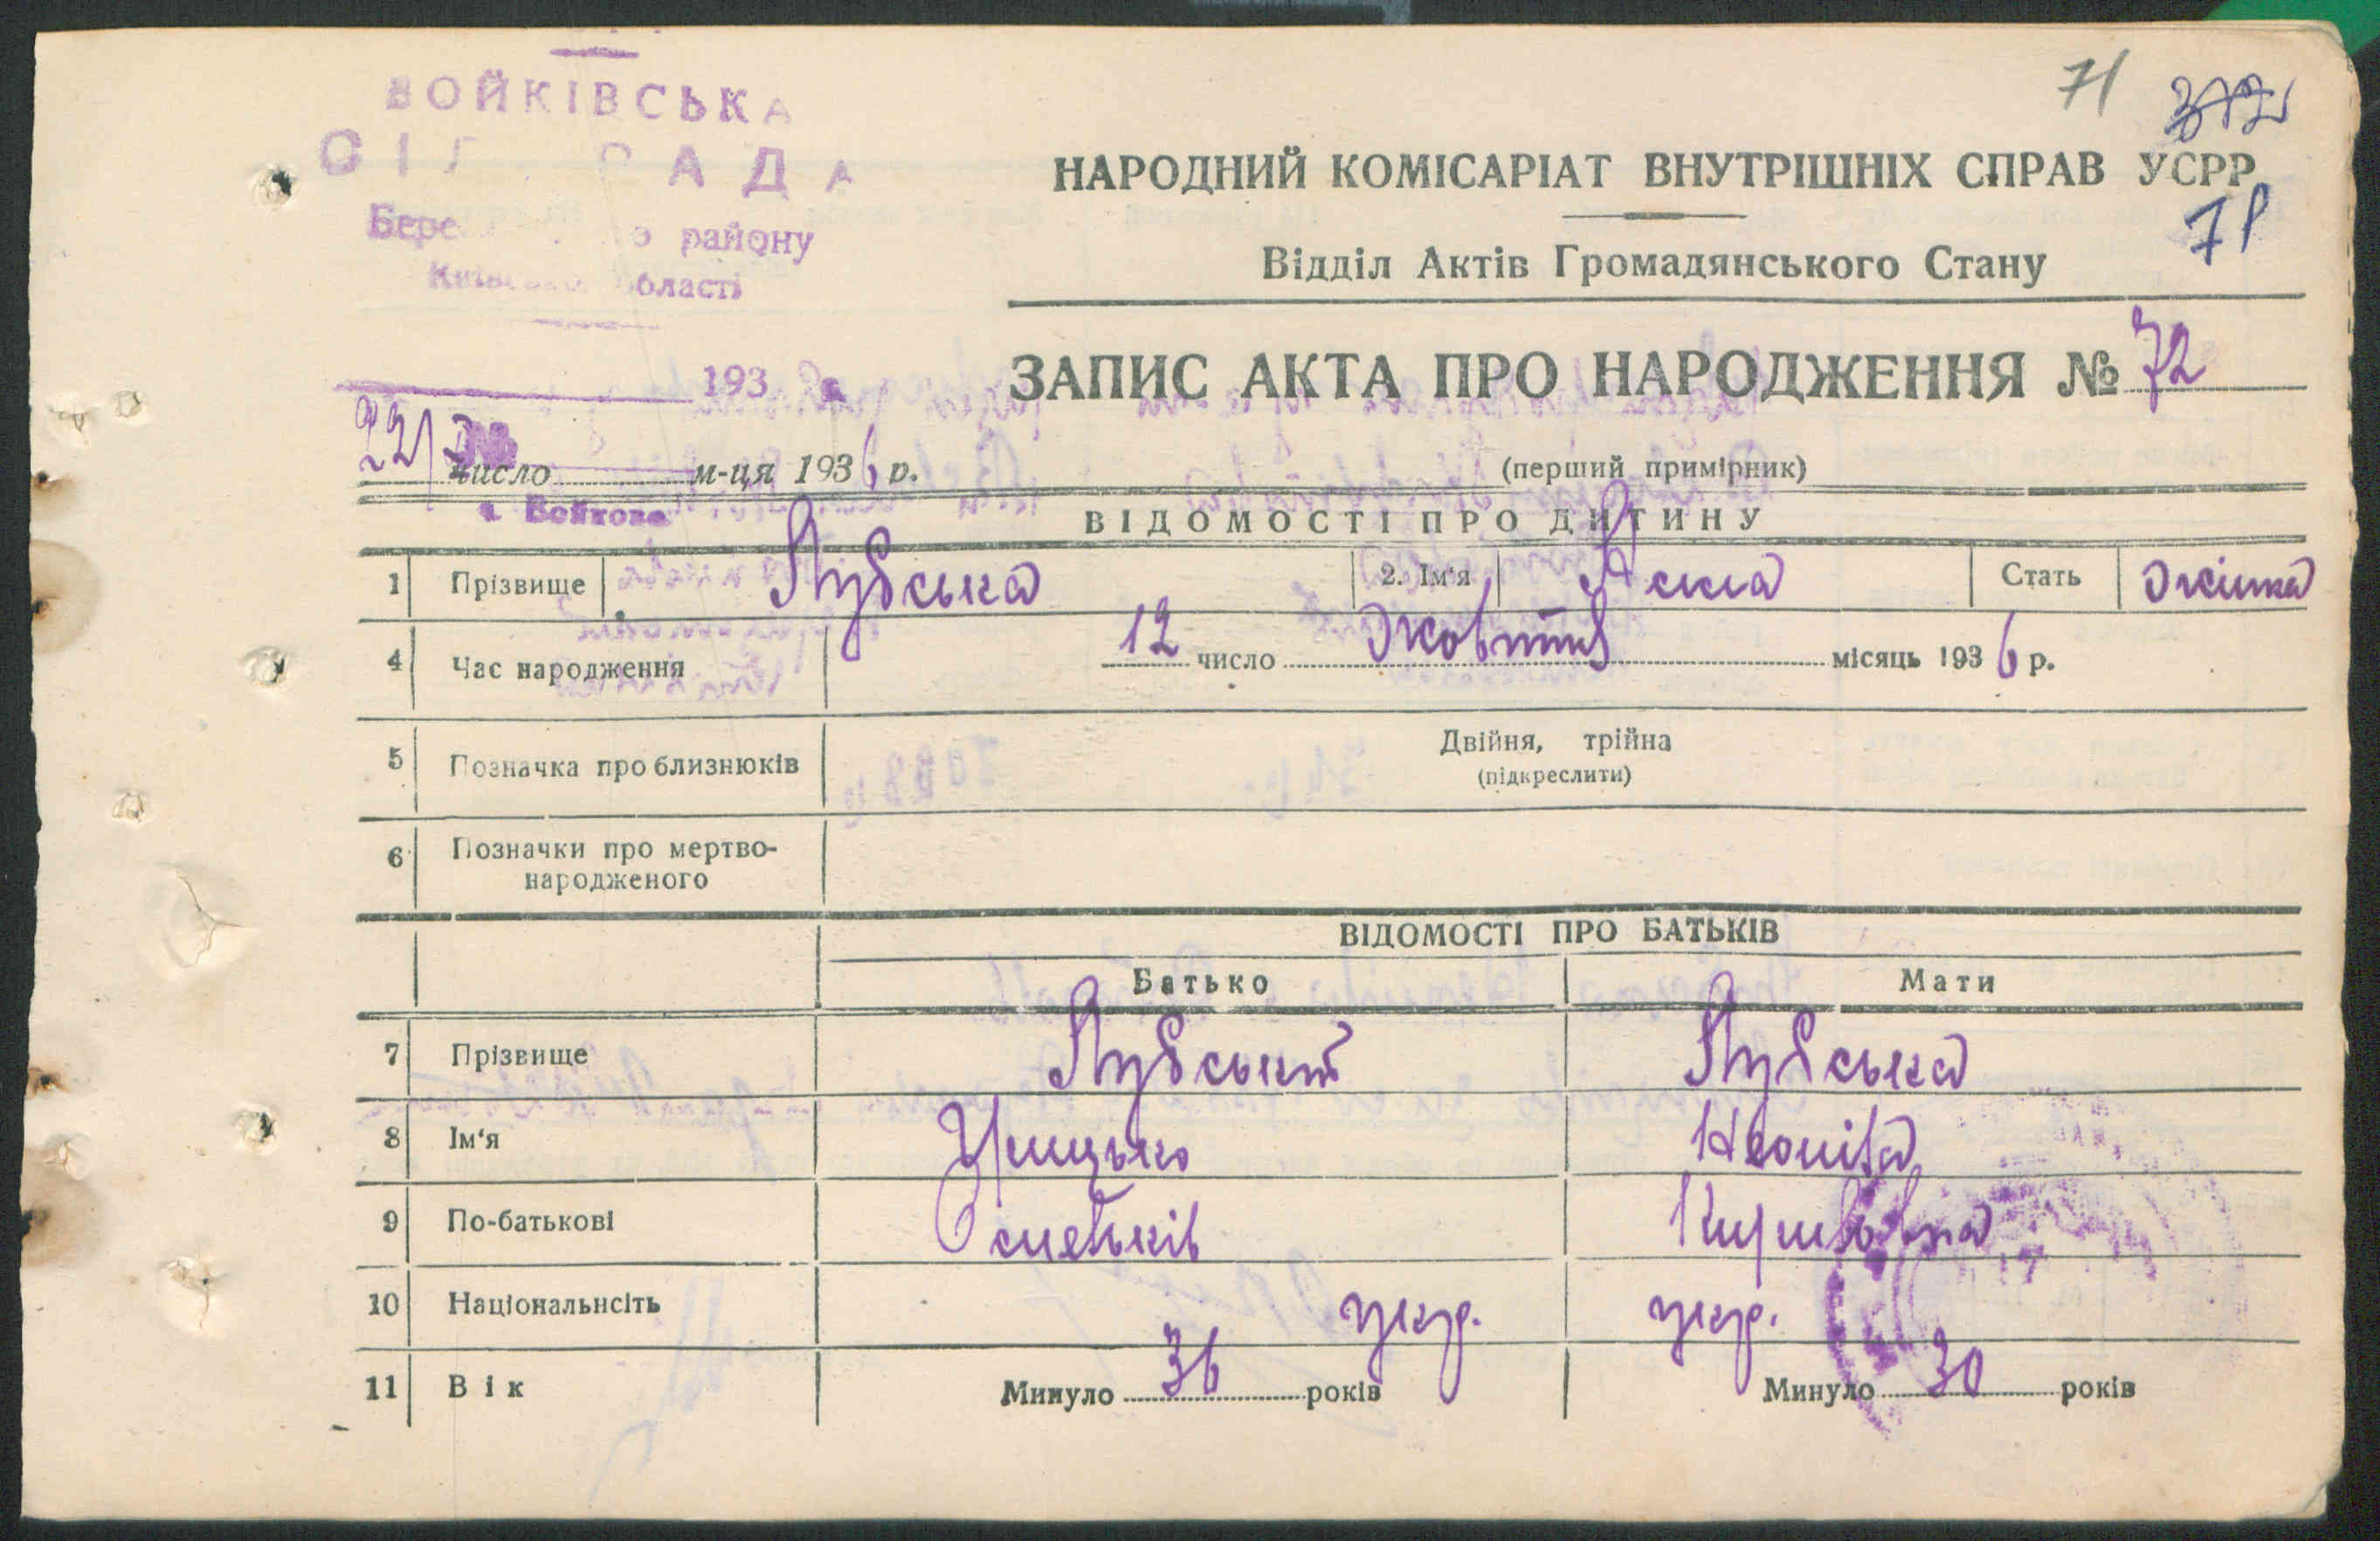 71
372
ВОЙКІВСЬКА
РАДА
району
області
НАРОДНИЙ КОМІСАРІАТ ВНУТРІШНІХ СПРАВ УСРР
71
Відділ Актів Громадянського Стану
193
ЗАПИС АКТА ПРО НАРОДЖЕННЯ № 72
22/X число м-ця 1936 р.
(перший примірник)
с. Войкове
ВІДОМОСТІ ПРО ДИТИНУ
1 Прізвище Лубська 2. Ім'я Стать жіноча
4 Час народження 12 число Жовтня місяць 1936 р.
5 Позначка про близнюків Двійня, трійна
(підкреслити)
6 Позначки про мертво-
народженого
ВІДОМОСТІ ПРО БАТЬКІВ
Батько Мати
7 Прізвище Лубський Лубська
8 Ім'я Грицько
9 По-батькові
10 Національнсіть укр. укр.
11 Вік Минуло 36 років Минуло 30 років